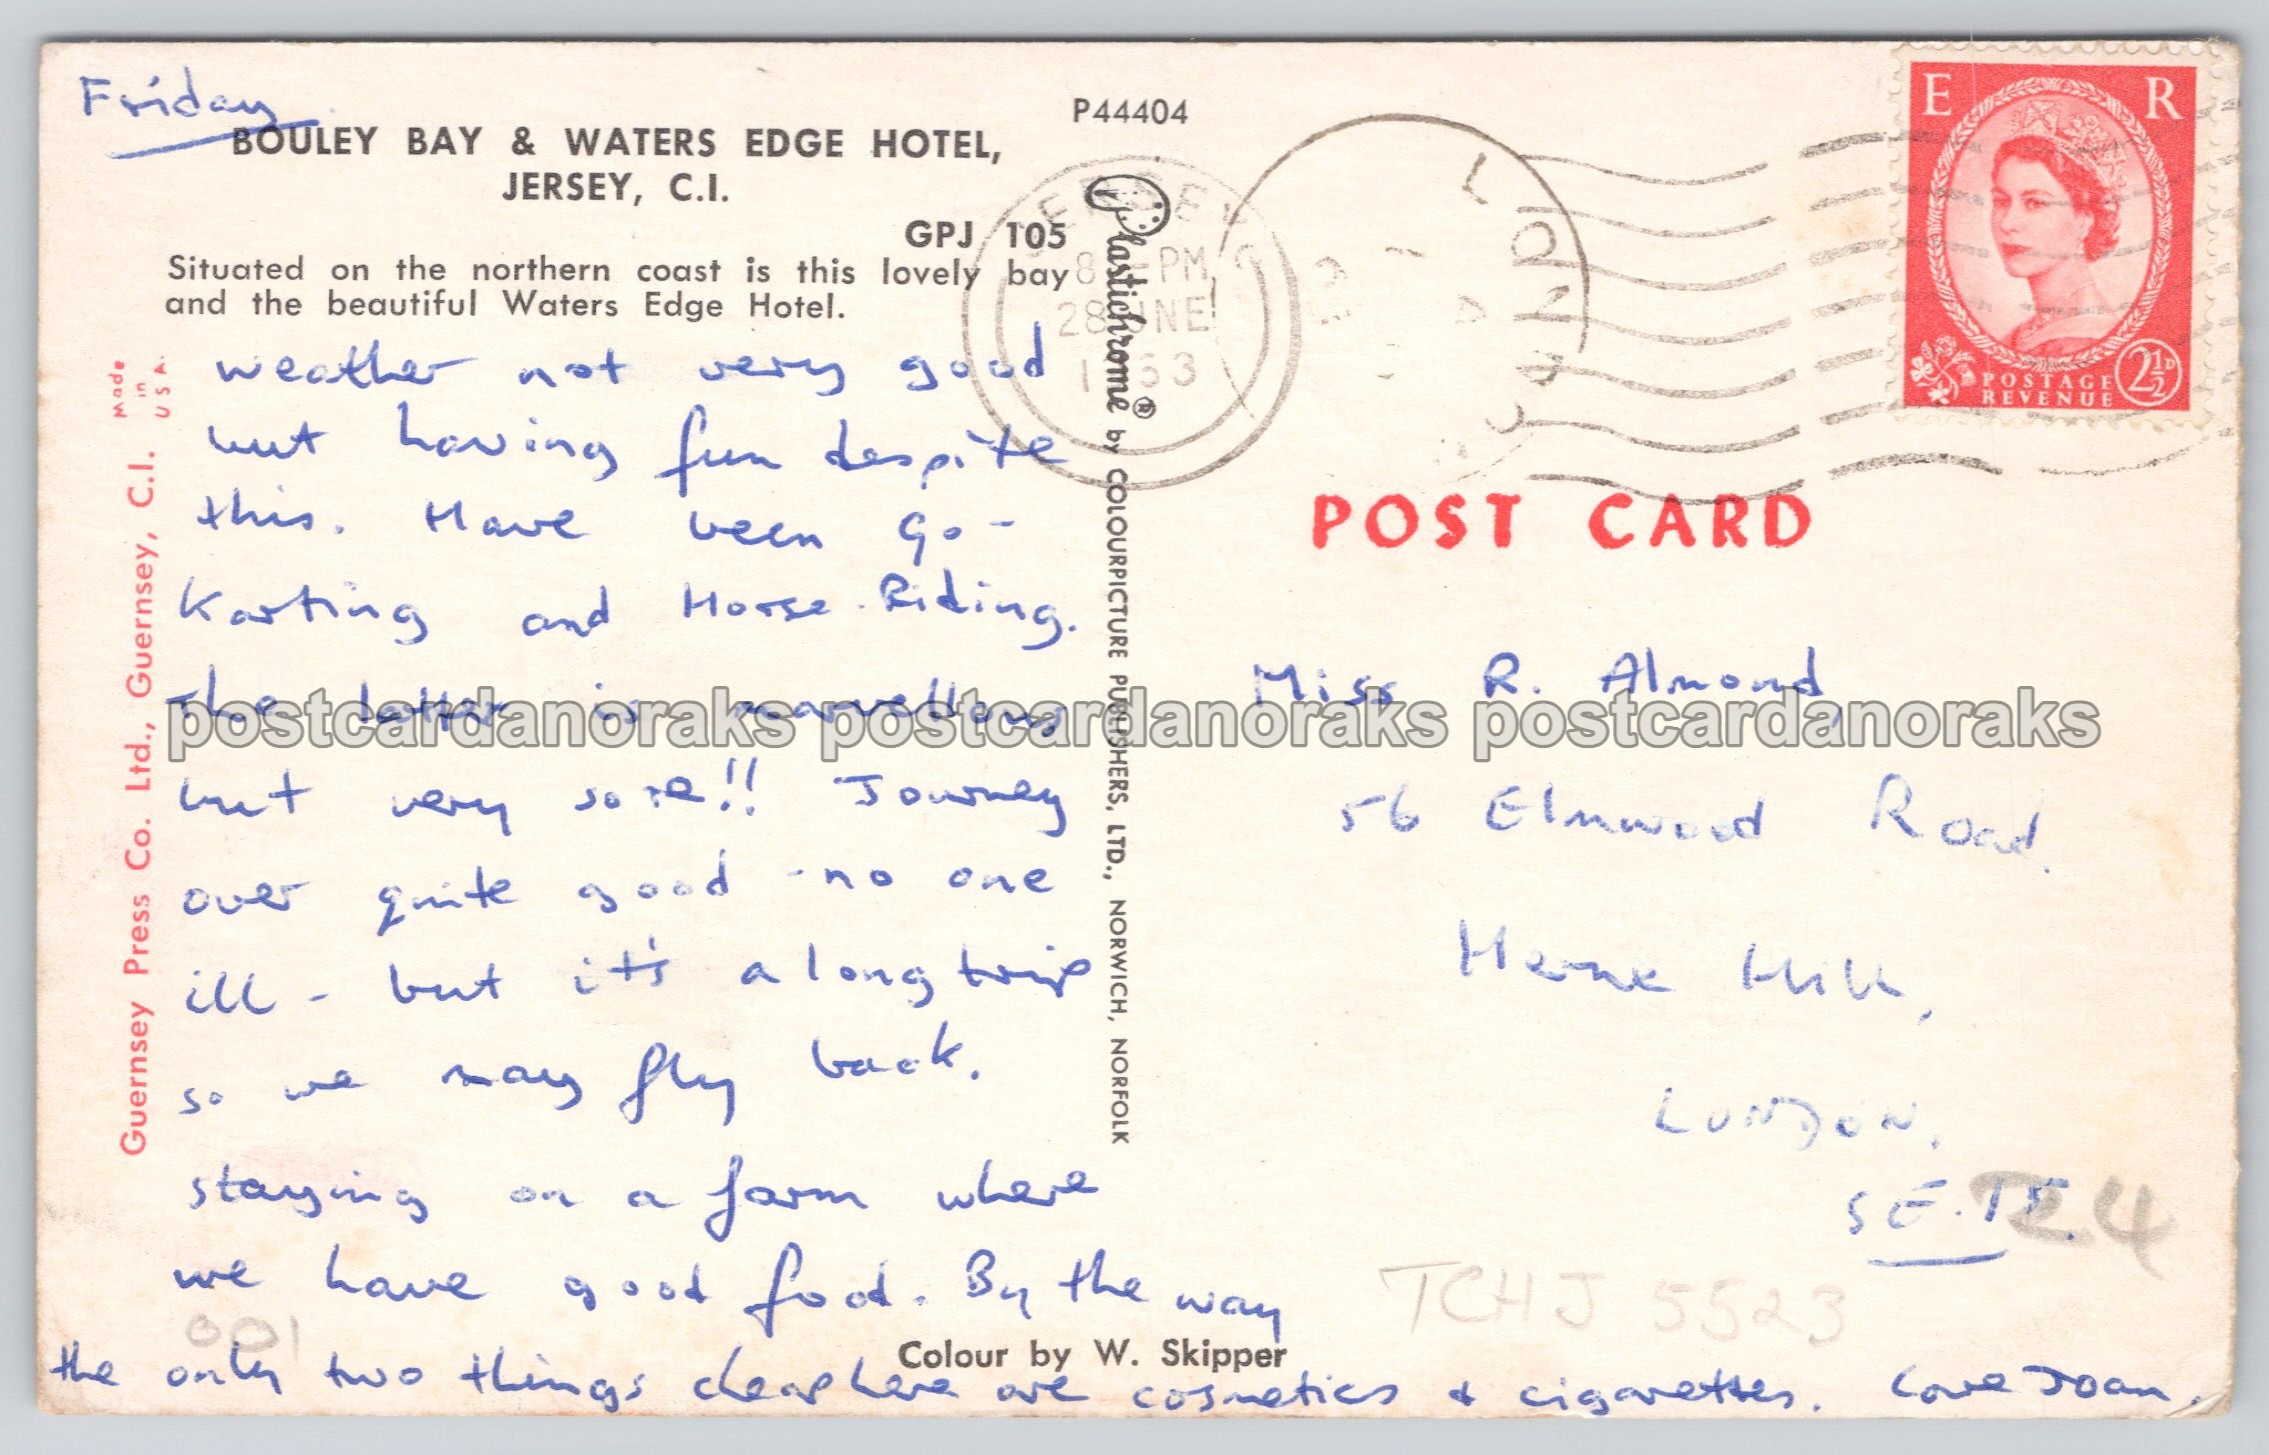 Friday
BOULEY BAY & WATERS EDGE HOTEL,
JERSEY, C.I.
GPJ 105
Situated on the northern coast is this lovely bay
and the beautiful Waters Edge Hotel.
weather not very good
but having fun despite
this. Have been Go-
Karting and Horse-Riding.
The latter is marvellous
but very sore!! Journey
over quite good - no one
ill - but it's a long trip
so we may fly back.
staying on a farm where
we have good food. By the way
the only two things cheap here are cosmetics & cigarettes. Love Joan.
Colour by W. Skipper
001
Guernsey Press Co. Ltd., Guernsey, C.I.
Made
in
USA.
P44404
Plastichrome® by COLOURPICTURE PUBLISHERS, LTD., NORWICH, NORFOLK
JERSEY
PM
28 JNE
1963
LONDO
E R
POSTAGE
REVENUE
2½D
POST CARD
Miss R. Almond,
56 Elmwood Road
Herne Hill,
LONDON.
SE.
24
TCHJ 5523
postcardanoraks postcardanoraks postcardanoraks